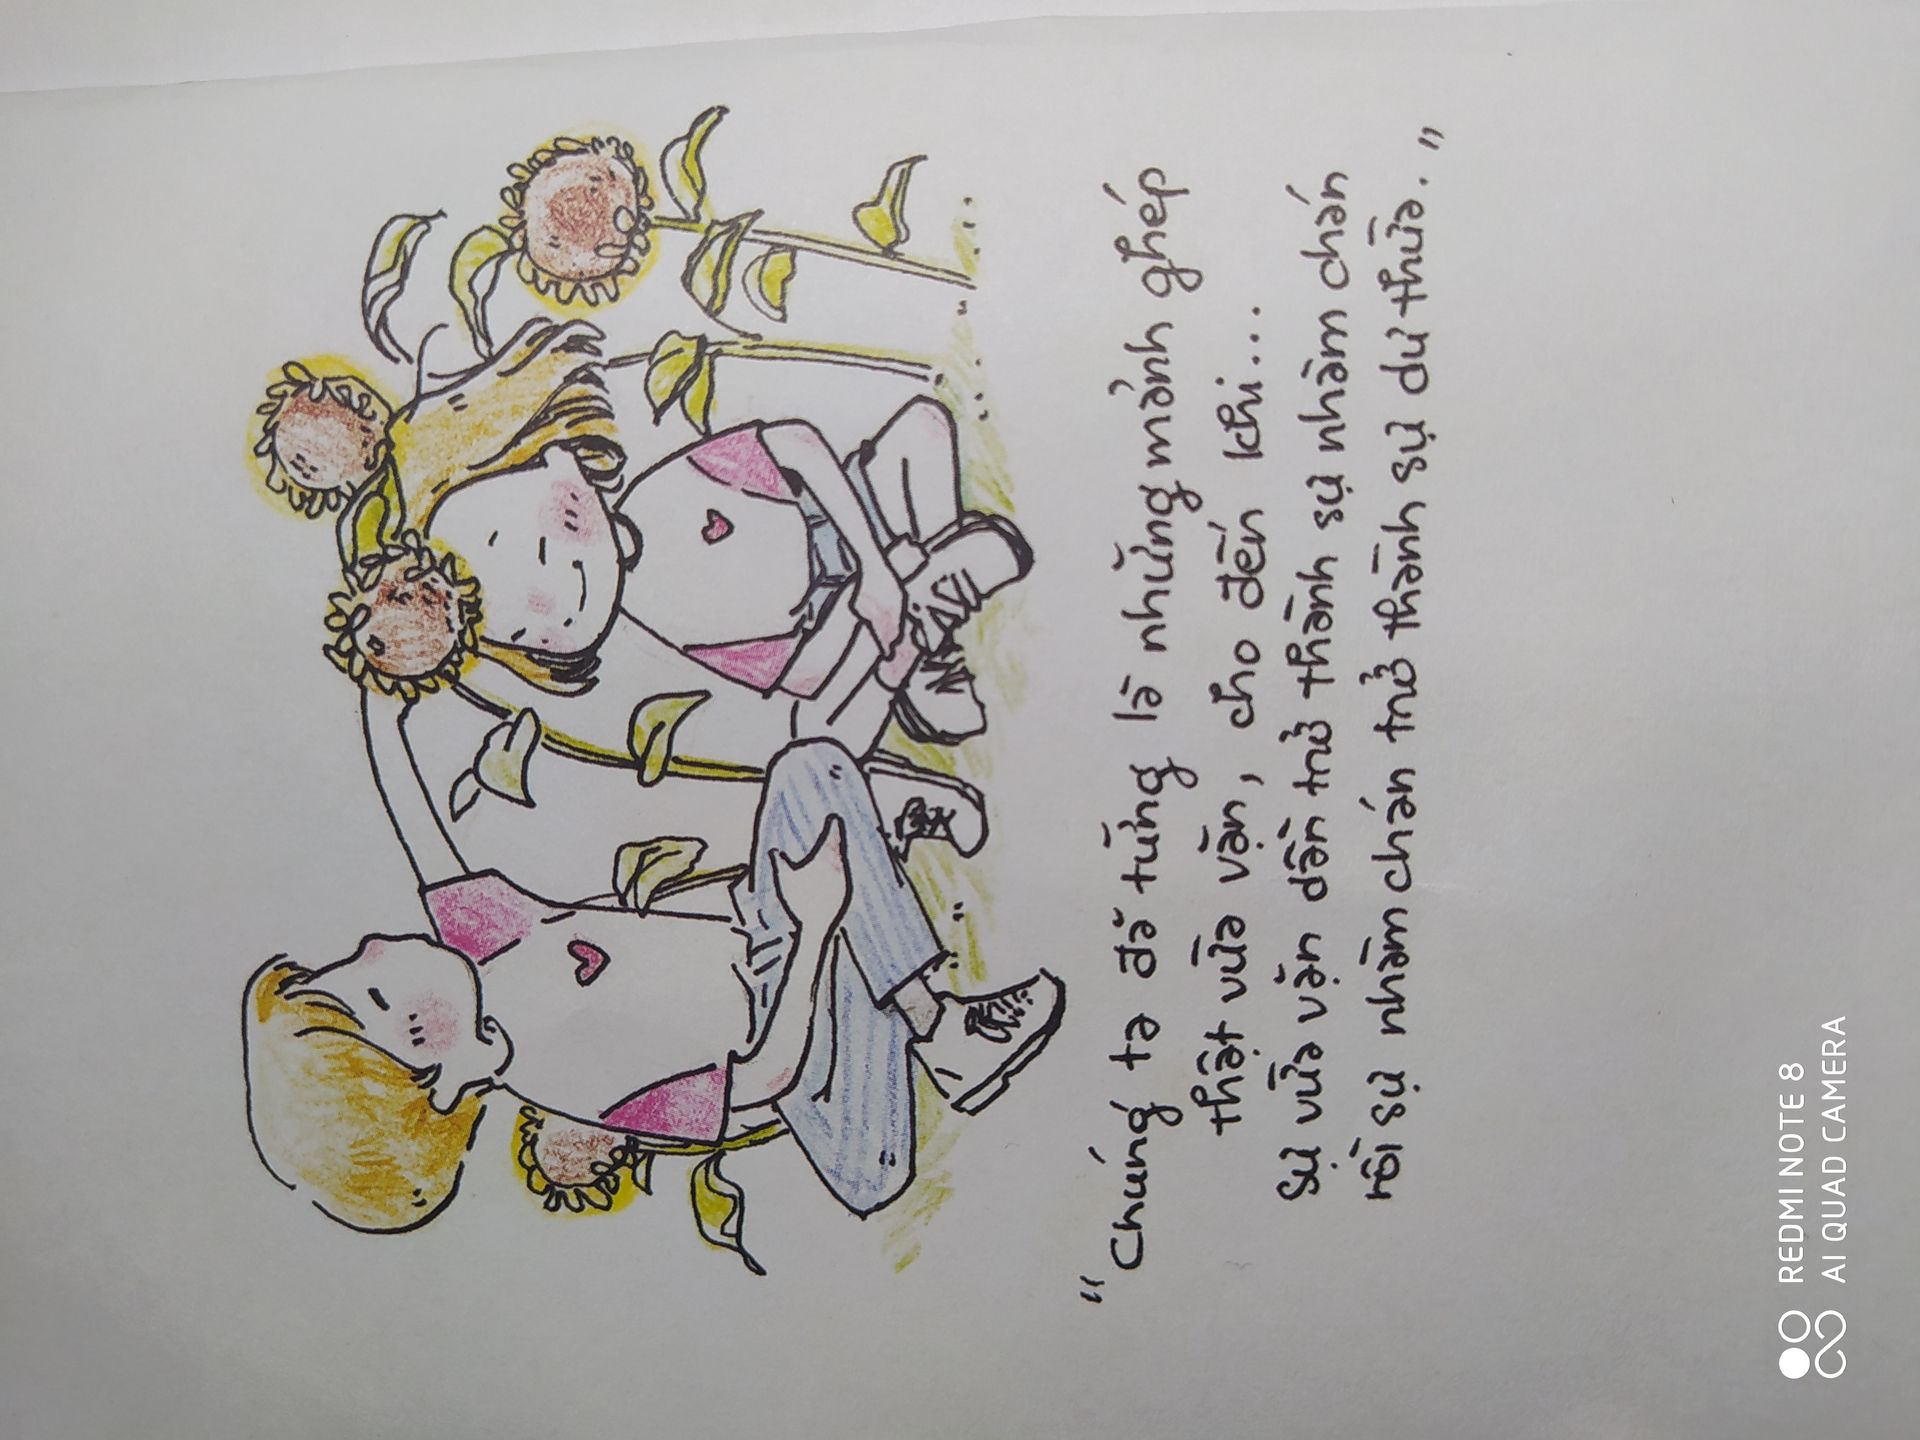 "Chúng ta đã từng là những mảnh ghép
thật vừa vặn, cho đến khi...
Sự vừa vặn dần trở thành sự nhàm chán
rồi sự nhàm chán trở thành sự dư thừa."
REDMI NOTE 8
AI QUAD CAMERA